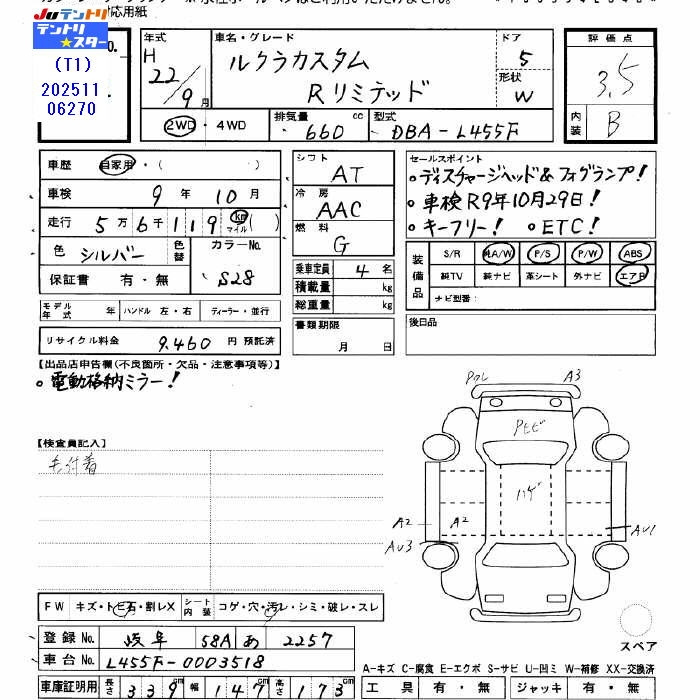 応用紙
JUテントリ
テントリ★スター
(T1)
202511
06270
No.
年式 H 22/9 月
車名・グレード ルクラカスタム Rリミテッド
ドア 5
形状 W
評価点 3.5
内装 B
2WD・4WD
排気量 660 cc
型式 DBA-L455F
車歴 自家用・( )
車検 9年10月
走行 5万6千119 km マイル ( )
色 シルバー 色替 カラーNo. S28
保証書 有・無
モデル年式 年 ハンドル 左・右 ディーラー・並行
リサイクル料金 9,460 円 預託済
シフト AT
冷房 AAC
燃料 G
乗車定員 4 名
積載量 kg
総重量 kg
書類期限 月 日
セールスポイント
○ディスチャージヘッド&フォグランプ!
○車検R9年10月29日!
○キーフリー! ○ETC!
装備品 S/R 純A/W P/S P/W ABS
純TV 純ナビ 革シート 外ナビ エアB
ナビ型番:
後日品
【出品店申告欄(不良箇所・欠品・注意事項等)】
○電動格納ミラー!
【検査員記入】
毛付着
A3
Pヒビ
ハゲ
A2
A2
AU3
AU1
スペア
FW キズ・トビ石・割レX シート内装 コゲ・穴・汚レ・シミ・破レ・スレ
登録No. 岐阜 58A あ 2257
車台No. L455F-0003518
車庫証明用 長さ 339 cm 幅 147 cm 高さ 173 cm
A-キズ C-腐食 E-エクボ S-サビ U-凹ミ W-補修 XX-交換済
工具 有・無 ジャッキ 有・無